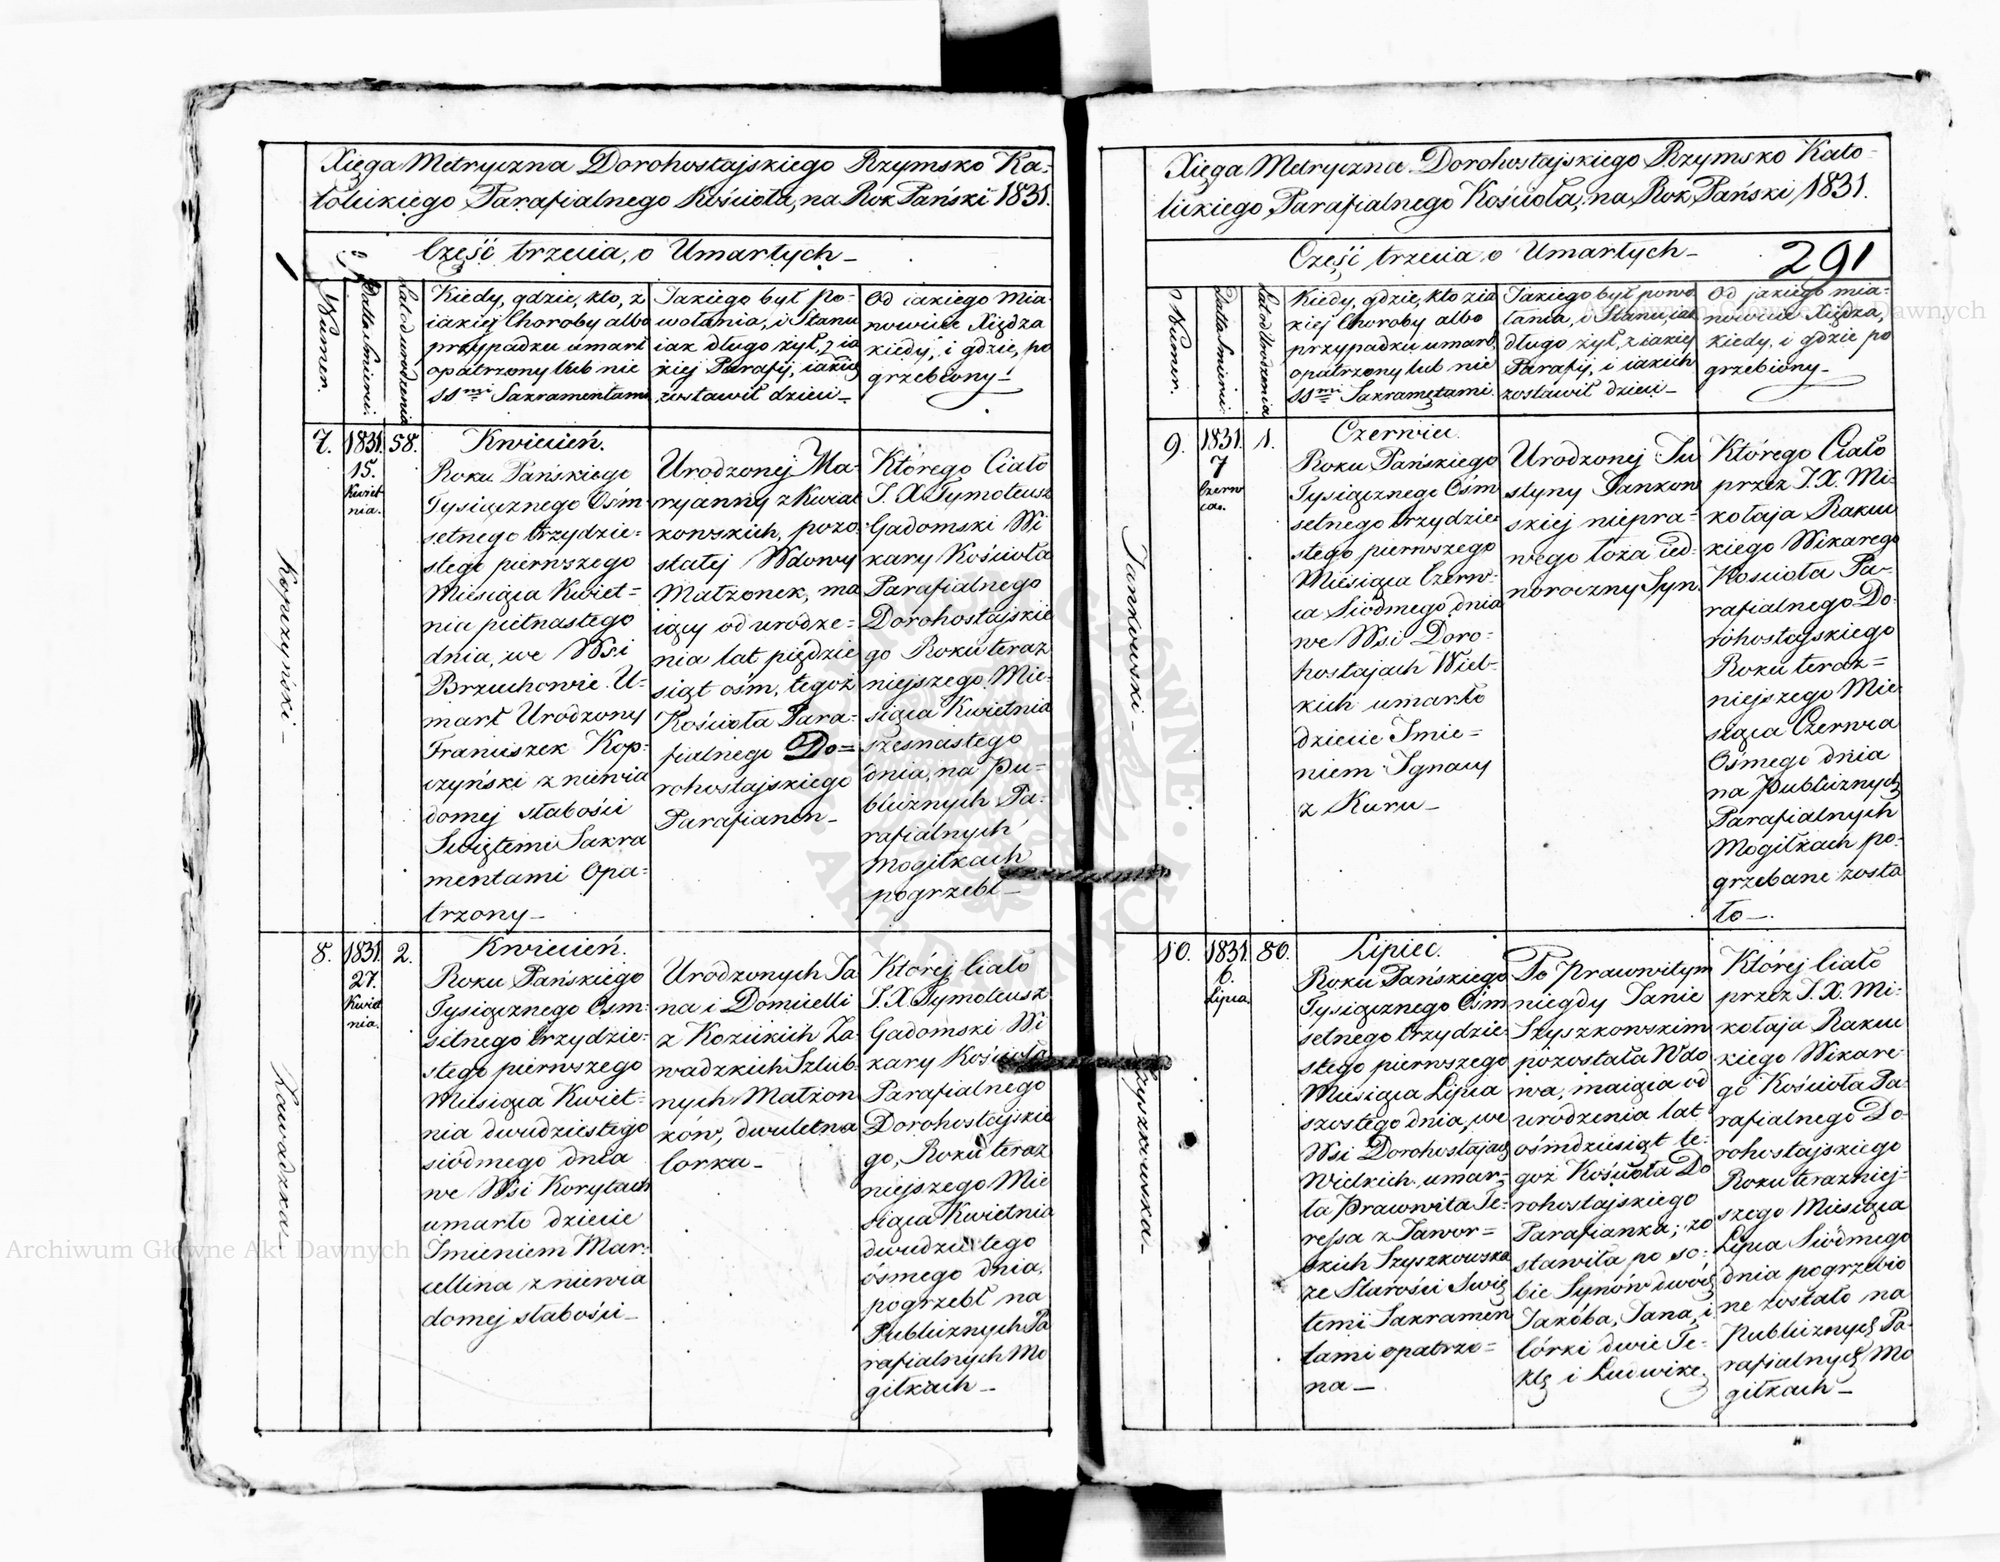 Xięga Metryczna Dorohostajskiego Rzymsko Ka-
tolickiego Parafialnego Kościoła, na Rok Pański 1831.
Część trzecia, o Umarłych_
Numer.
Datta śmierci.
Lat od urodzenia
Kiedy, gdzie, kto, z
iakiej Choroby albo
przypadku umarł
opatrzony lub nie
SSmi Sakramentami
Jakiego był po-
wołania, i Stanu
iak długo żył, z ia
kiej Parafij, iakie
zostawił dzieci_
Od iakiego mia-
nowicie Xiędza
kiedy, i gdzie, po
grzebiony_
Kopczyński_
7.
1831.
15.
Kwiet
nia.
58.
Kwiecień.
Roku Pańskiego
Tysiącznego Ośm
setnego trzydzie=
stego pierwszego
Miesiąca Kwiet=
nia pietnastego
dnia, we Wsi
Brzuchowie U-
marł Urodzony
Franciszek Kop-
czyński z niewia
domej słabości
Swiętemi Sakra
mentami Opa-
trzony_
Urodzonej Ma-
ryanny z Kwiat
kowskich, pozo
stałej Wdowy
Małżonek, ma
iący od urodze-
nia lat pięćdzie
siąt ośm, tegoż
Kościoła Para-
fialnego Do=
rohostajskiego
Parafianin_
Którego Ciało
J. X. Tymoteusz
Gadomski Wi
kary Kościoła
Parafialnego
Dorohostajskie
go Roku teraz
niejszego Mie-
siąca Kwietnia
szesnastego
dnia, na Pu-
blicznych Pa-
rafialnych
Mogiłkach
pogrzebł_
Zawadzka_
8.
1831.
27.
Kwiet
nia.
2.
Kwiecień.
Roku Pańskiego
Tysiącznego Osm-
setnego trzydzie-
stego pierwszego
Miesiąca Kwiet-
nia dwudziestego
siódmego dnia
we Wsi Korytach
umarło dziecie
Imieniem Mar-
cellina z niewia
domej słabości_
Urodzonych Ja
na i Domicelli
z Kozickich Za-
wadzkich Szlub-
nych Małżon
kow, dwuletnia
Corka_
Której Ciało
J. X. Tymoteusz
Gadomski Wi
kary Kościoła
Parafialnego
Dorohostajskie
go, Roku teraz
niejszego Mie
siąca Kwietnia
dwudziestego
ósmego dnia,
pogrzebł na
Publicznych Pa
rafialnych Mo
giłkach_
Xięga Metryczna Dorohostajskiego Rzymsko Kato-
lickiego Parafialnego Kościoła, na Rok Pański 1831.
Część trzecia o Umarłych_
291
Numer.
Datta śmierci.
Lat od Urodzenia
Kiedy, gdzie, kto z ia
kiej Choroby albo
przypadku umarł,
opatrzony lub nie
SSmi Sakramętami
Jakiego był powo
łania, i Stanu, iak
długo żył, z iakiej
Parafij, i iakich
zostawił dzieci_
Od jakiego mia-
nowicie Xiędza,
kiedy, i gdzie po
grzebiony_
Jankowski_
9.
1831.
7
Czerw
ca.
1.
Czerwiec.
Roku Pańskiego
Tysiącznego Ośm
setnego trzydzie
stego pierwszego
Miesiąca Czerw-
ca Siódmego dnia
we Wsi Doro-
hostajach Wiel-
kich umarło
dziecie Imie-
niem Ignacy
z Kuru_
Urodzonej Ju
styny Jankow
skiej niepra-
wego łoża ied-
noroczny Syn.
Którego Ciało
przez J. X. Mi-
kołaja Rakuc
kiego Wikarego
Kościoła Pa-
rafialnego Do-
rohostajskiego
Roku teraz=
niejszego Mie
siąca Czerwca
Ósmego dnia
na Publicznych
Parafialnych
Mogiłkach po-
grzebane zosta
ło_.
Szyszkowska_
10.
1831.
6.
Lipca.
80.
Lipiec.
Roku Pańskiego
Tysiącznego Ośm
setnego trzydzie-
stego pierwszego
Miesiąca Lipca
szostego dnia, we
Wsi Dorohostajach
Wielkich umar-
ła Prawowita Te-
ressa z Jawor=
skich Szyszkowska
ze Starości Swię
temi Sakramen
tami opatrzo=
na_
Po Prawowitym
niegdy Janie
Szyszkowskim
pozostała Wdo
wa, maiąca od
urodzenia lat
ośmdziesiąt te-
goż Kościoła Do
rohostajskiego
Parafianka; zo
stawiła po so-
bie Synów dwóch
Jakóba, Jana, i
Córki dwie Te-
klę i Ludwikę.
Której Ciało
przez J. X. Mi-
kołaja Rakuc
kiego Wikare-
go Kościoła Pa-
rafialnego Do
rohostajskiego
Roku teraźniej-
szego Miesiąca
Lipca Siódmego
dnia pogrzebio
ne zostało na
Publicznych Pa-
rafialnych Mo
giłkach_
Archiwum Główne Akt Dawnych